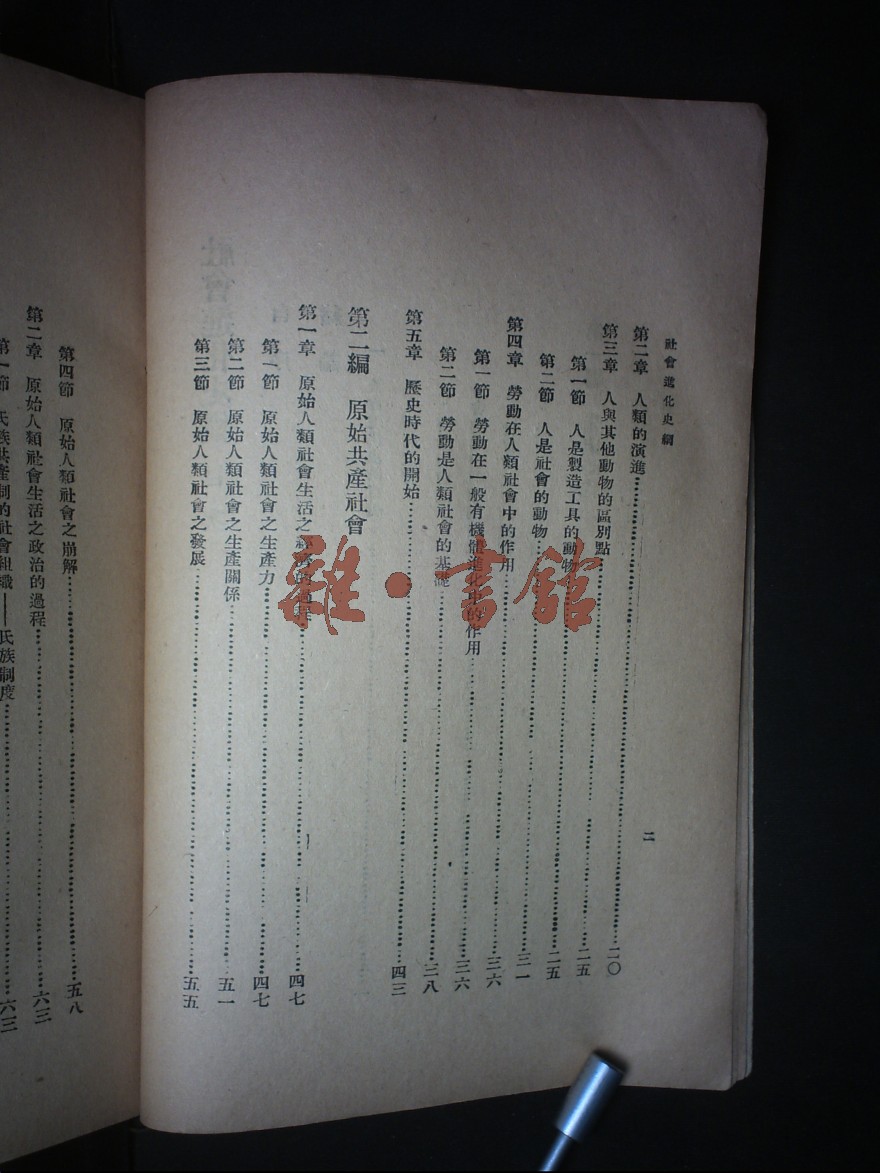 社會進化史綱
二
第二章　人類的演進……二〇
第三章　人與其他動物的區別點……二五
第一節　人是製造工具的動物……二五
第二節　人是社會的動物……三一
第四章　勞動在人類社會中的作用……三六
第一節　勞動在一般有機體進化中的作用……三六
第二節　勞動是人類社會的基礎……三八
第五章　歷史時代的開始……四三
第二編　原始共產社會
第一章　原始人類社會生活之經濟的過程……四七
第一節　原始人類社會之生產力……四七
第二節　原始人類社會之生產關係……五一
第三節　原始人類社會之發展……五五
第四節　原始人類社會之崩解……五八
第二章　原始人類社會生活之政治的過程……六三
第一節　氏族共產制的社會組織——氏族制度……六三
雜·書館